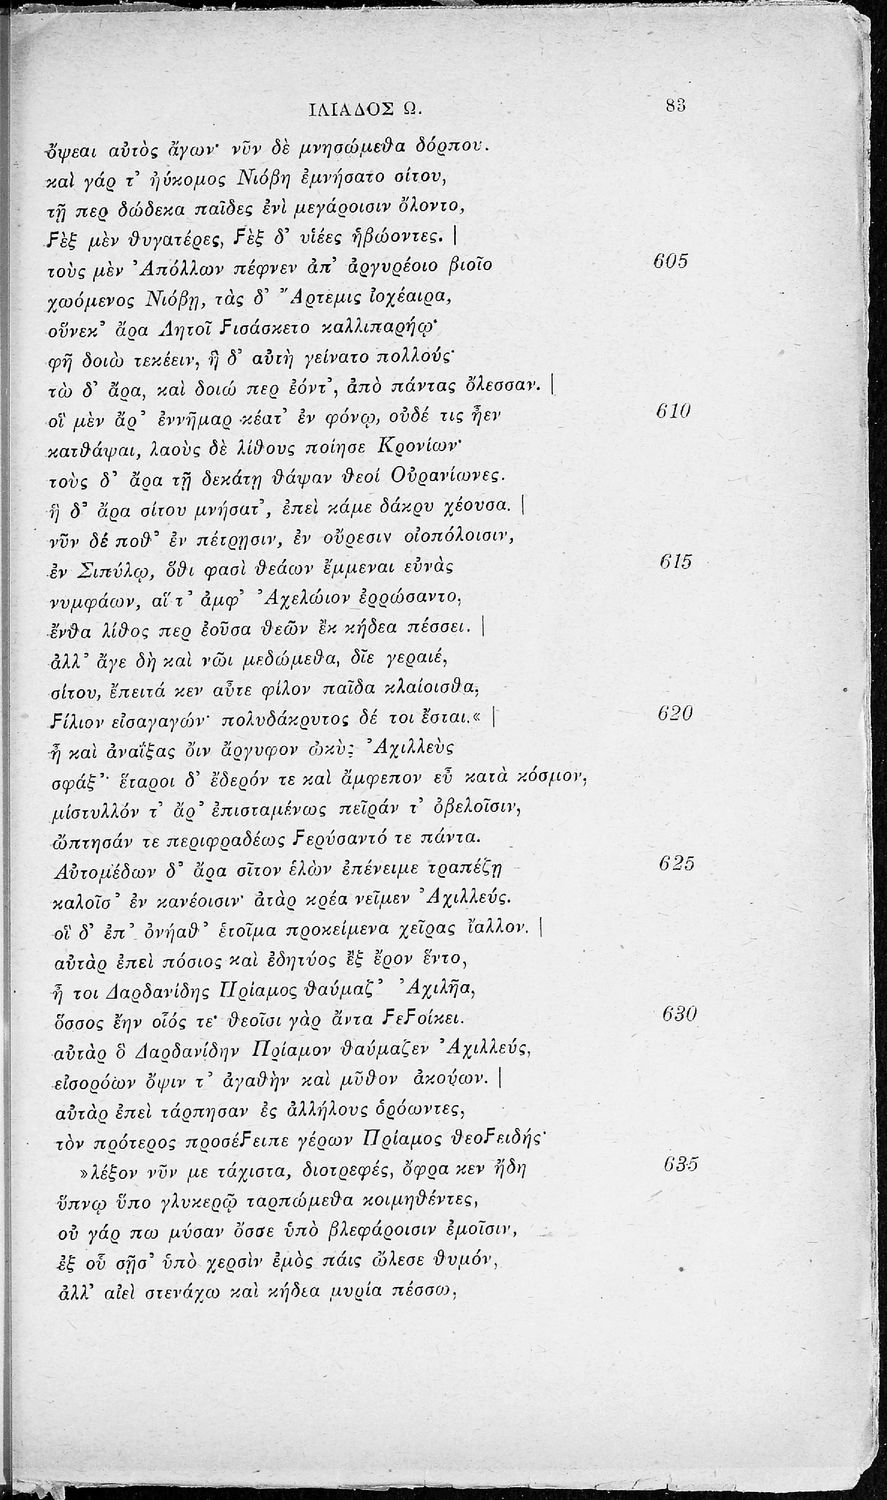 ΙΛΙΑΔΟΣ Ω. 83
ὄψεαι αὐτὸς ἄγων· νῦν δὲ μνησώμεθα δόρπου.
καὶ γάρ τ' ἠύκομος Νιόβη ἐμνήσατο σίτου,
τῇ περ δώδεκα παῖδες ἐνὶ μεγάροισιν ὄλοντο,
ϝὲξ μὲν θυγατέρες, ϝὲξ δ' υἱέες ἡβώοντες. |
τοὺς μὲν Ἀπόλλων πέφνεν ἀπ' ἀργυρέοιο βιοῖο 605
χωόμενος Νιόβῃ, τὰς δ' Ἄρτεμις ἰοχέαιρα,
οὕνεκ' ἄρα Λητοῖ ϝισάσκετο καλλιπαρήῳ·
φῆ δοιὼ τεκέειν, ἣ δ' αὐτὴ γείνατο πολλούς·
τὼ δ' ἄρα, καὶ δοιώ περ ἐόντ', ἀπὸ πάντας ὄλεσσαν. |
οἳ μὲν ἄρ' ἐννῆμαρ κέατ' ἐν φόνῳ, οὐδέ τις ἦεν 610
κατθάψαι, λαοὺς δὲ λίθους ποίησε Κρονίων·
τοὺς δ' ἄρα τῇ δεκάτῃ θάψαν θεοὶ Οὐρανίωνες.
ἣ δ' ἄρα σίτου μνήσατ', ἐπεὶ κάμε δάκρυ χέουσα. |
νῦν δέ ποθ' ἐν πέτρῃσιν, ἐν οὔρεσιν οἰοπόλοισιν,
ἐν Σιπύλῳ, ὅθι φασὶ θεάων ἔμμεναι εὐνὰς 615
νυμφάων, αἵ τ' ἀμφ' Ἀχελώιον ἐρρώσαντο,
ἔνθα λίθος περ ἐοῦσα θεῶν ἒκ κήδεα πέσσει. |
ἀλλ' ἄγε δὴ καὶ νῶι μεδώμεθα, δῖε γεραιέ,
σίτου, ἔπειτά κεν αὖτε φίλον παῖδα κλαίοισθα,
ϝίλιον εἰσαγαγών· πολυδάκρυτος δέ τοι ἔσται.« | 620
ἦ καὶ ἀναΐξας ὄιν ἄργυφον ὠκὺς Ἀχιλλεὺς
σφάξ'· ἕταροι δ' ἔδερόν τε καὶ ἄμφεπον εὖ κατὰ κόσμον,
μίστυλλόν τ' ἄρ' ἐπισταμένως πεῖράν τ' ὀβελοῖσιν,
ὤπτησάν τε περιφραδέως ϝερύσαντό τε πάντα.
Αὐτομέδων δ' ἄρα σῖτον ἑλὼν ἐπένειμε τραπέζῃ 625
καλοῖσ' ἐν κανέοισιν· ἀτὰρ κρέα νεῖμεν Ἀχιλλεύς.
οἳ δ' ἐπ' ὀνήαθ' ἑτοῖμα προκείμενα χεῖρας ἴαλλον. |
αὐτὰρ ἐπεὶ πόσιος καὶ ἐδητύος ἒξ ἔρον ἕντο,
ἦ τοι Δαρδανίδης Πρίαμος θαύμαζ' Ἀχιλῆα,
ὅσσος ἔην οἷός τε· θεοῖσι γὰρ ἄντα ϝεϝοίκει. 630
αὐτὰρ ὃ Δαρδανίδην Πρίαμον θαύμαζεν Ἀχιλλεύς,
εἰσορόων ὄψιν τ' ἀγαθὴν καὶ μῦθον ἀκούων. |
αὐτὰρ ἐπεὶ τάρπησαν ἐς ἀλλήλους ὁρόωντες,
τὸν πρότερος προσέϝειπε γέρων Πρίαμος θεοϝειδής·
»λέξον νῦν με τάχιστα, διοτρεφές, ὄφρα κεν ἤδη 635
ὕπνῳ ὕπο γλυκερῷ ταρπώμεθα κοιμηθέντες,
οὐ γάρ πω μύσαν ὄσσε ὑπὸ βλεφάροισιν ἐμοῖσιν,
ἐξ οὗ σῇσ' ὑπὸ χερσὶν ἐμὸς πάις ὤλεσε θυμόν,
ἀλλ' αἰεὶ στενάχω καὶ κήδεα μυρία πέσσω,